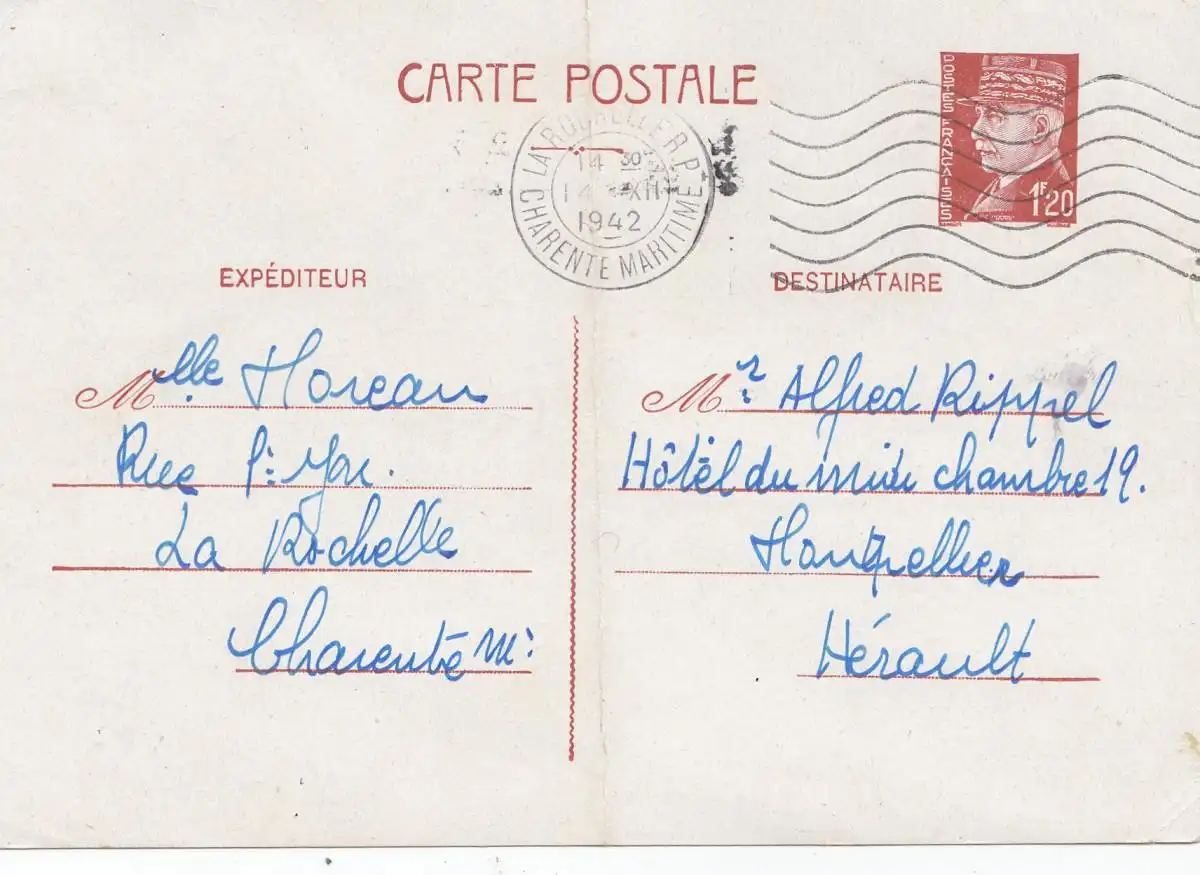 CARTE POSTALE
POSTES FRANÇAISES
1F20
LA ROCHELLE R.P.
14 30
14 XII
1942
CHARENTE MARITIME
EXPÉDITEUR
DESTINATAIRE
Mlle Moreau
Rue
La Rochelle
Charente Mme
Mr Alfred Rippel
Hôtel du midi chambre 19.
Montpellier
Hérault